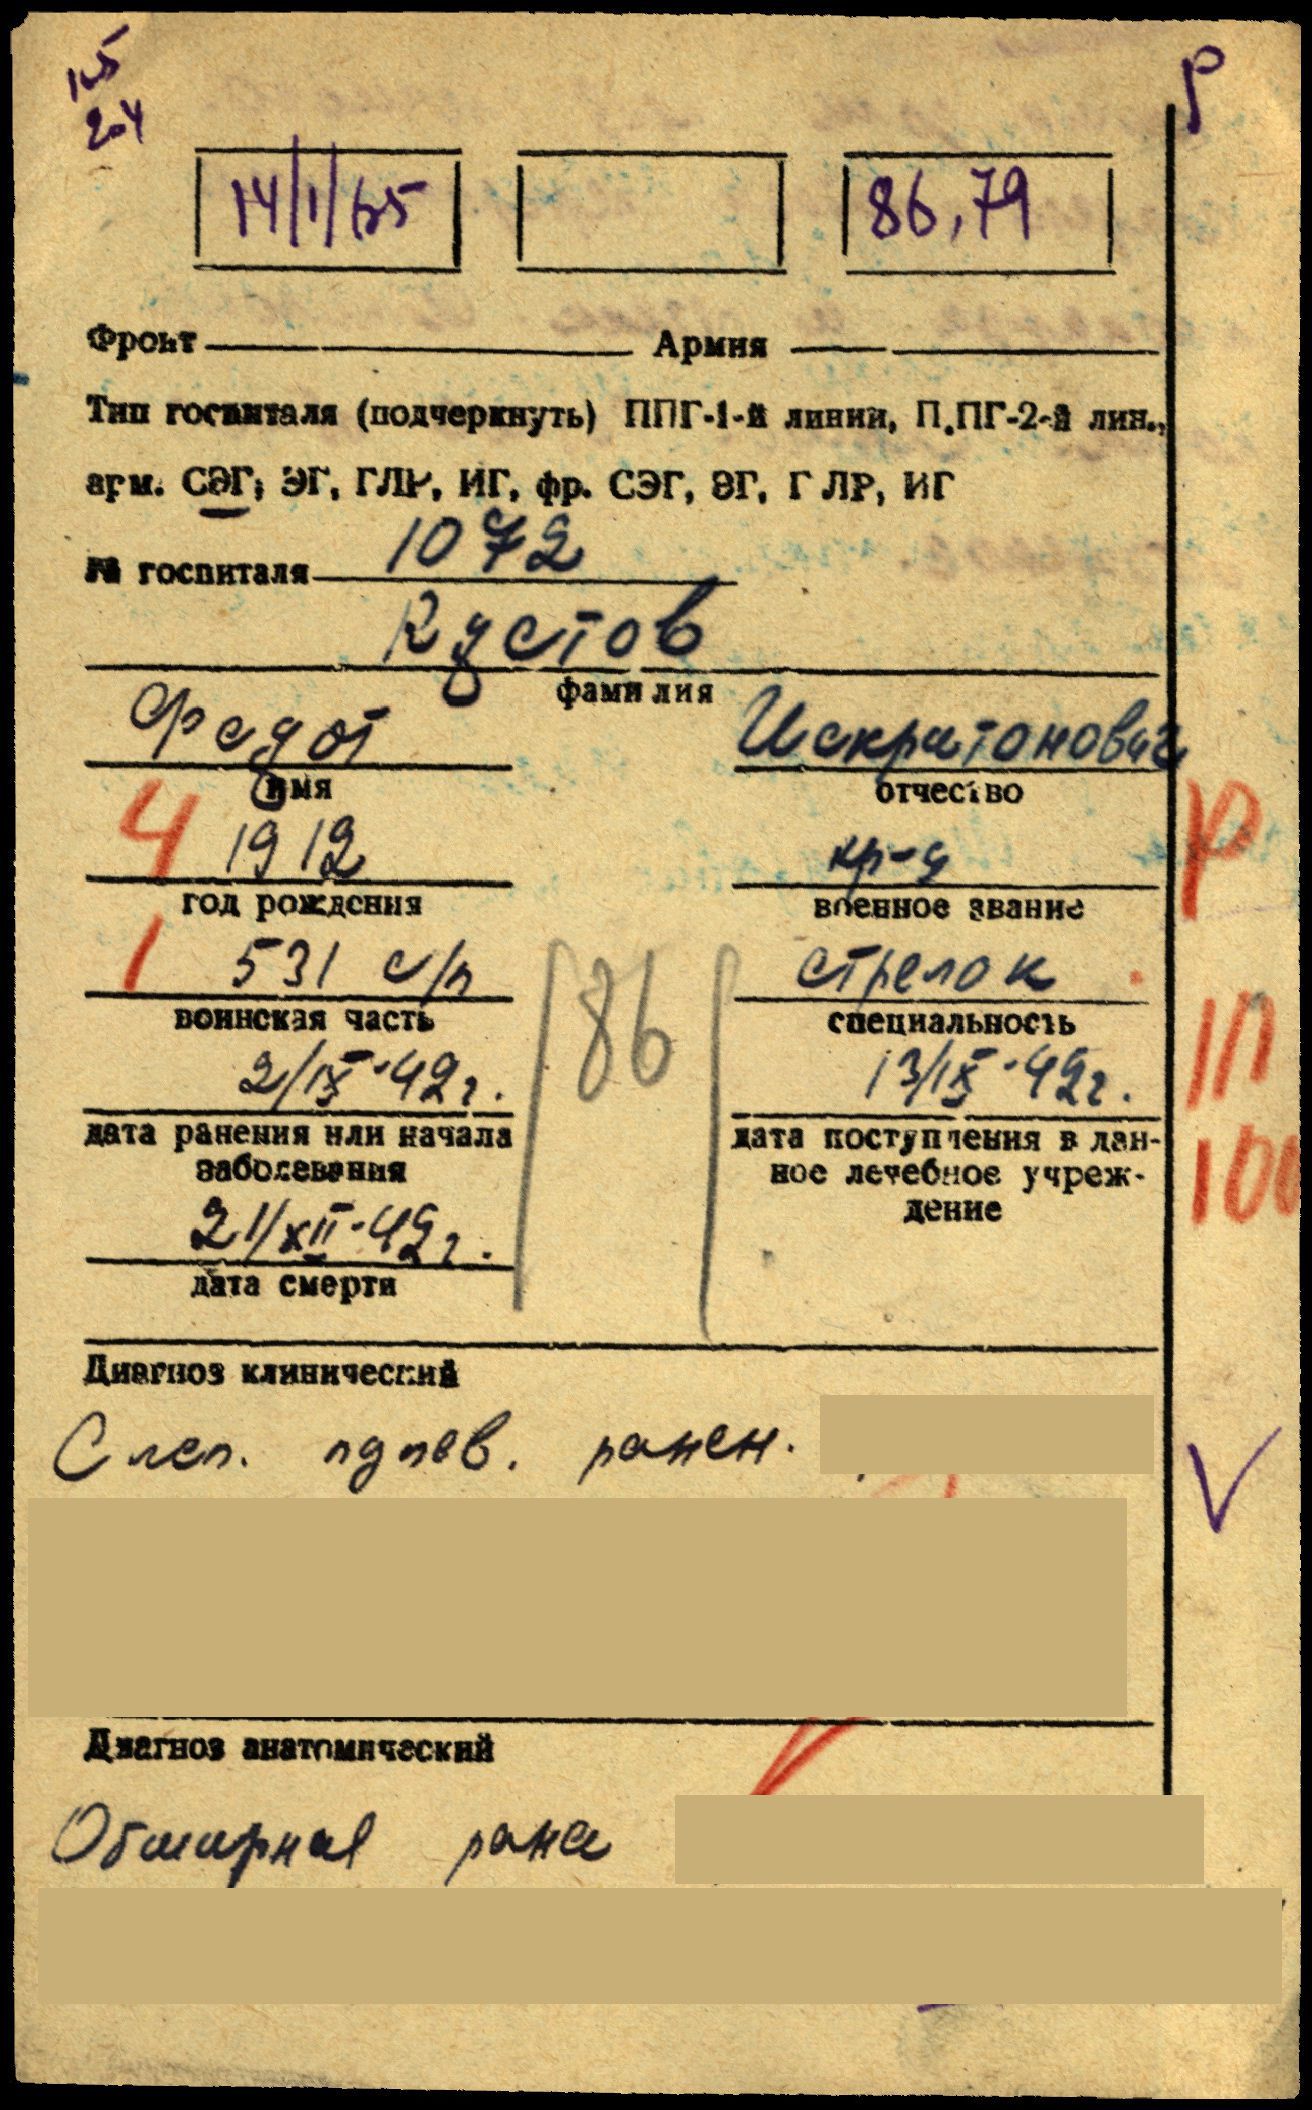 204
14/1/65 86,79
Р
Фронт Армия
Тип госпиталя (подчеркнуть) ППГ-1-й линии, П.ПГ-2-й лин.,
арм. СЭГ, ЭГ, ГЛР, ИГ, фр. СЭГ, ЭГ, ГЛР, ИГ
№ госпиталя 1072
Кустов
фамилия
Федот Искритонович
имя отчество
4 1912 кр-ц Р
год рождения военное звание
1 531 с/п стрелок
воинская часть специальность
86
2/IX-42г. 13/IX-42г. 1/1
дата ранения или начала дата поступления в дан-
заболевания ное лечебное учреж-
дение
100
21/XII-42г.
дата смерти
Диагноз клинический
Слеп. пулев. ранен.
Диагноз анатомический
Обширная рана